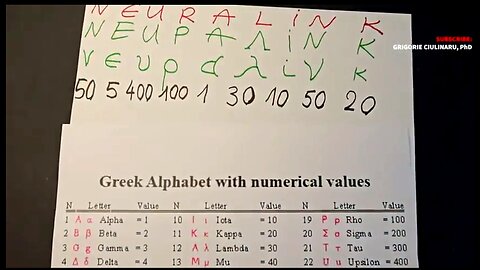 SUBSCRIBE:
GRIGORIE CIULINARU, PhD
NEURALINK
NEUPAΛiNK
νευραλiνκ
50 5 400 100 1 30 10 50 20
Greek Alphabet with numerical values
N. Letter Value N. Letter Value N. Letter Value
1 Αα Alpha = 1 10 Ιι Iota = 10 19 Ρρ Rho = 100
2 Ββ Beta = 2 11 Κκ Kappa = 20 20 Σσ Sigma = 200
3 Gg Gamma = 3 12 Λλ Lambda = 30 21 Ττ Tau = 300
4 Δδ Delta = 4 13 Μμ Mu = 40 22 Upsilon = 400